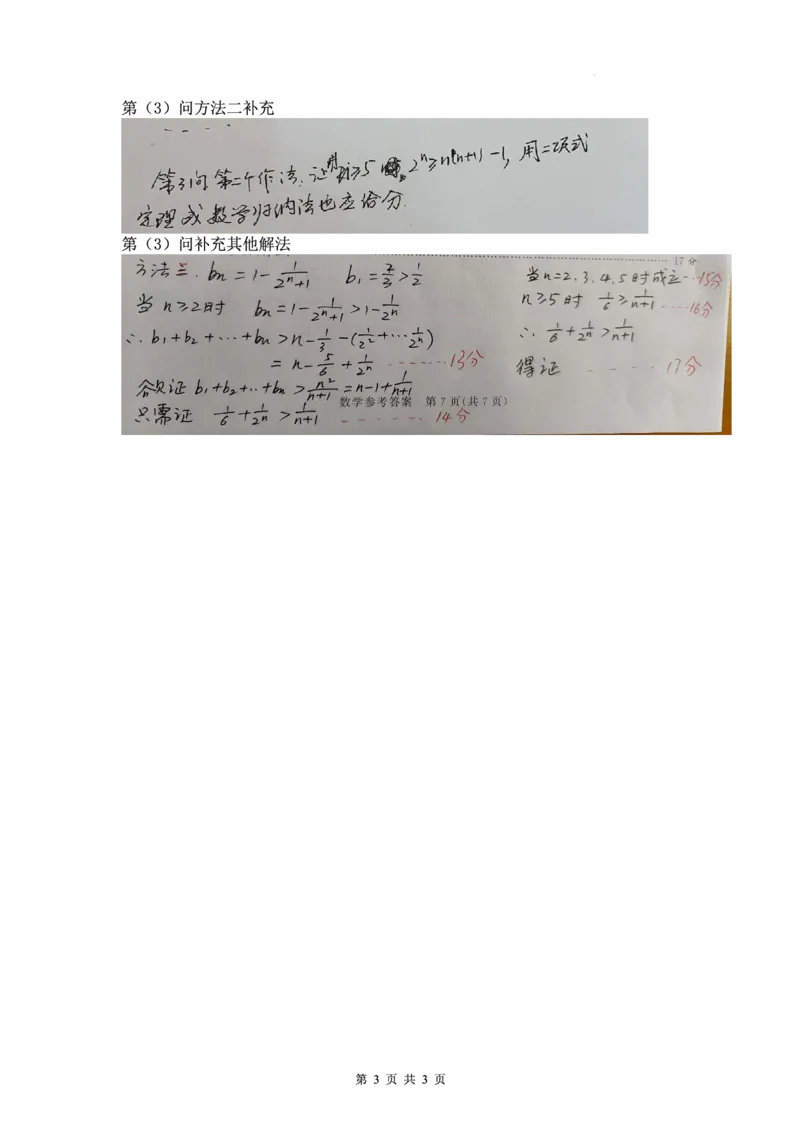 第（3）问方法二补充
第3问第二个作法.证明 n≥5时, 2ⁿ≥n(n+1)-1, 用二项式
定理或数学归纳法也应给分.
第（3）问补充其他解法
17分
方法三. bn = 1 - 1/(2ⁿ+1) b₁ = 2/3 > 1/2
当 n≥2时 bn = 1 - 1/(2ⁿ+1) > 1 - 1/2ⁿ
∴ b₁+b₂+···+bn > n - 1/3 - (1/2²+···1/2ⁿ)
= n - 5/6 + 1/2ⁿ ------13分
欲证 b₁+b₂+··+bn > n²/(n+1) = n-1+1/(n+1)
只需证 1/6 + 1/2ⁿ > 1/(n+1) ------14分
当n=2.3.4.5时成立---15分
n≥5时 1/6 ≥ 1/(n+1) ----16分
∴ 1/6 + 1/2ⁿ > 1/(n+1)
得证 ----17分
数学参考答案 第7页(共7页)
第 3 页 共 3 页